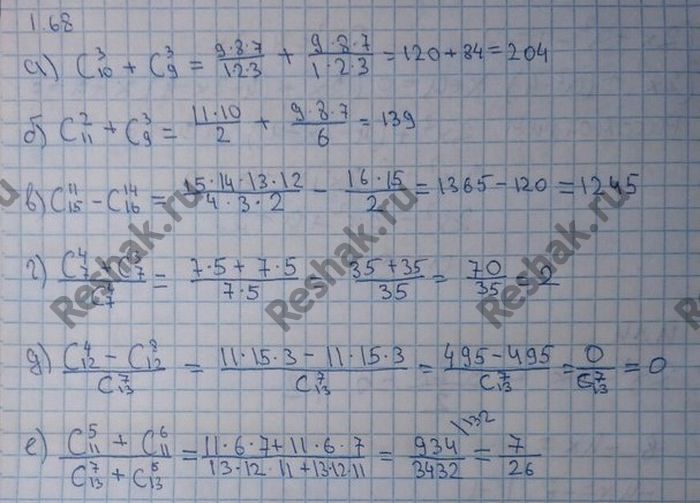 1.68
а) C₁₀³ + C₉³ = 9·8·7/1·2·3 + 9·8·7/1·2·3 = 120 + 84 = 204
б) C₁₁² + C₉³ = 11·10/2 + 9·8·7/6 = 139
в) C₁₅¹¹ − C₁₆¹⁴ = 15·14·13·12/4·3·2 − 16·15/2 = 1365 − 120 = 1245
г) C₇⁴ + C₇³/C₇⁴ = 7·5 + 7·5/7·5 = 35 + 35/35 = 70/35 = 2
д) C₁₂⁴ − C₁₂⁸/C₁₃⁷ = 11·15·3 − 11·15·3/C₁₃⁷ = 495 − 495/C₁₃⁷ = 0/C₁₃⁷ = 0
е) C₁₁⁵ + C₁₁⁶/C₁₃⁷ + C₁₃⁶ = 11·6·7 + 11·6·7/13·12·11 + 13·12·11 = 934/3432 = 7/26
\\132
Reshak.ru
Reshak.ru
Reshak.ru
Reshak.ru